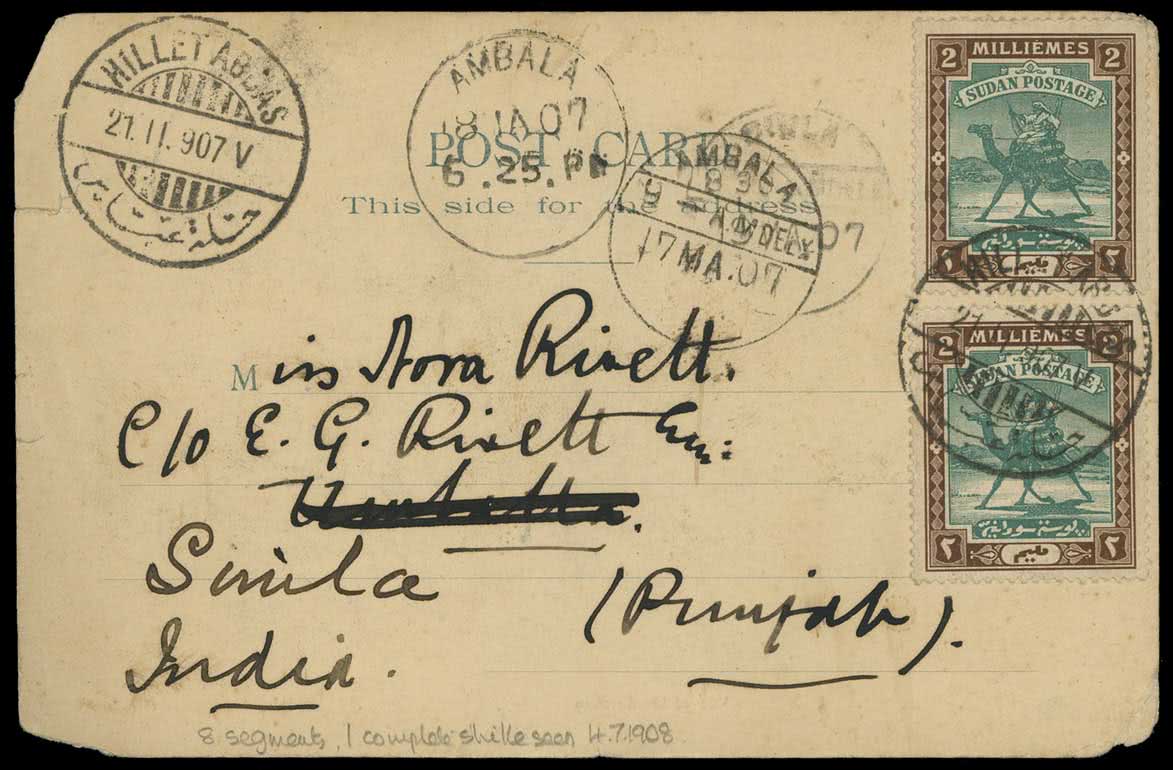 HILLET ABBAS
21. II. 907 V
حلة عباس
AMBALA
18 MA 07
6.25.PM
POST CARD
This side for the address
AMBALA
17 MA.07
2 MILLIÈMES 2
SUDAN POSTAGE
بوستة سودانية
٢ مليم ٢
2 MILLIÈMES 2
SUDAN POSTAGE
بوستة سودانية
٢ مليم ٢
Miss Nora Rivett.
C/o E. G. Rivett Esq:
Simla
(Punjab).
India.
8 segments, 1 complete strike seen 4.7.1908